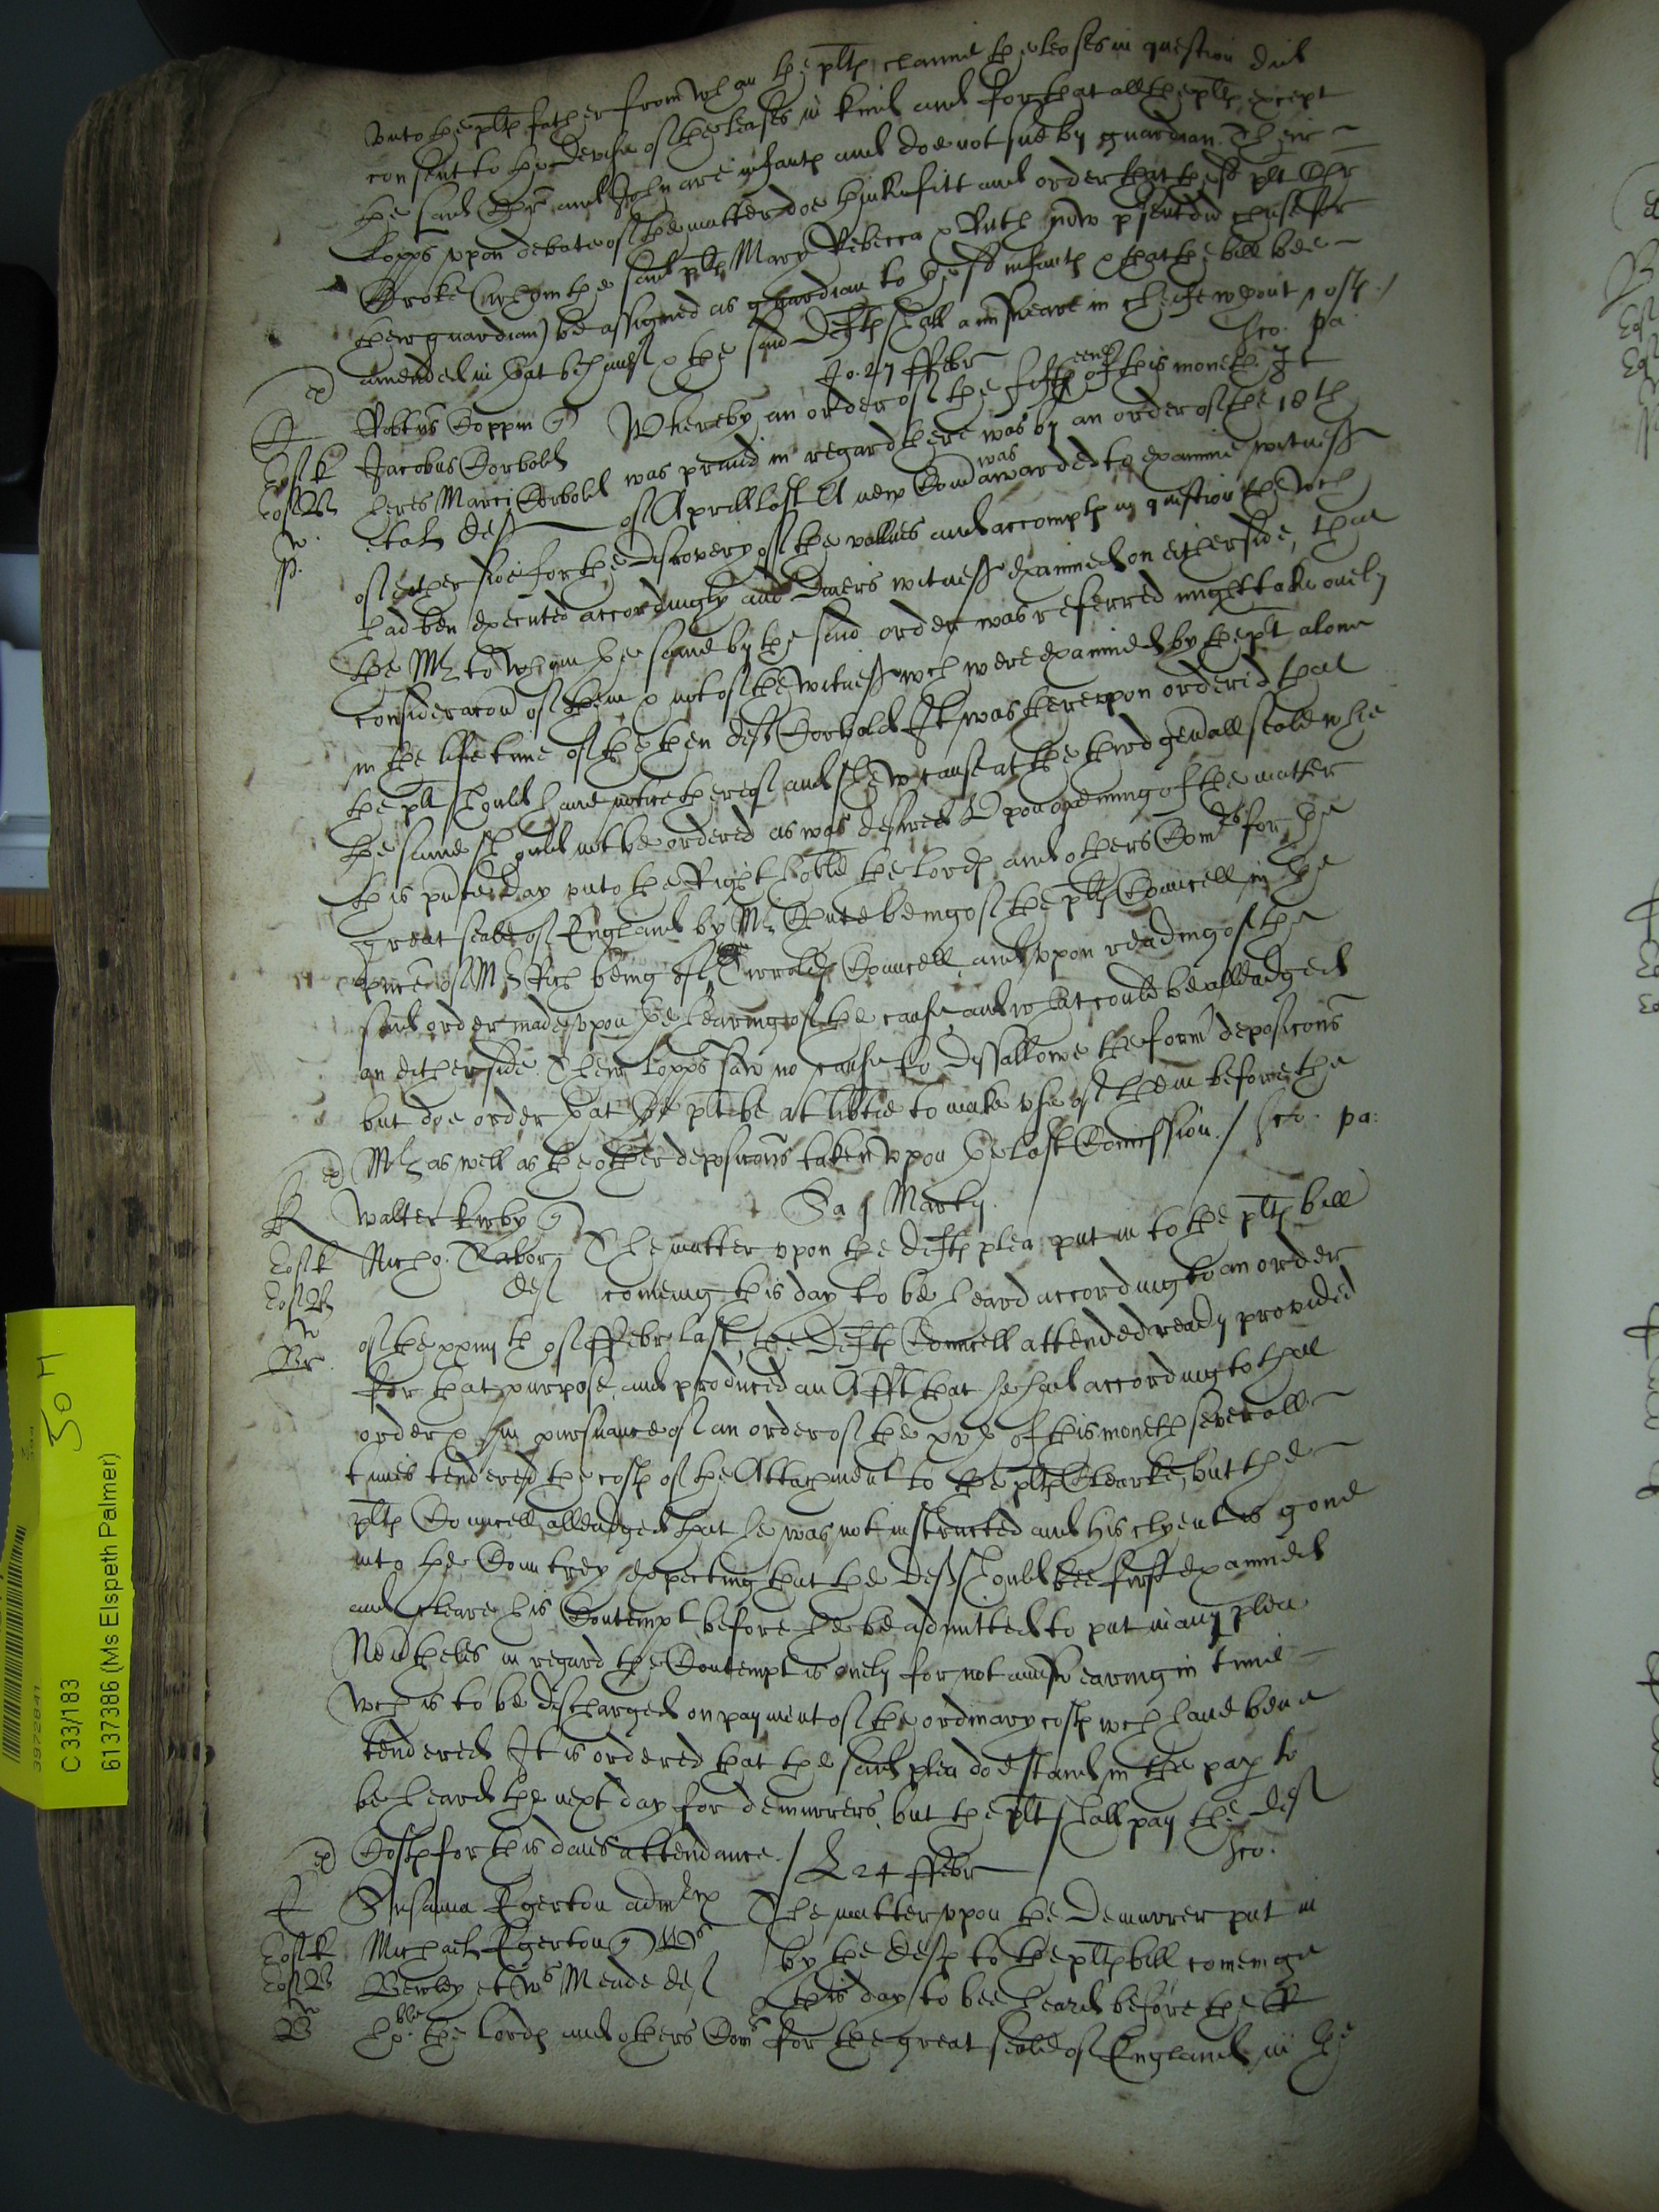 vnto the plts father from whom the plts claime the leases in question did
consent to the devise of the leases in kind and for that all the plts except
the said Chr and John are infants and doe not sue by guardian Their
Lopps vpon debate of the matter doe thinke fitt and order that the sd plt Chr
Broke (whom the said plts Mary Rebecca & Ruth now psent did chuse for
their guardian) be assigned as guardian to the sd infants & that the bill bee
amended in that behalfe & the said Defts shall answeare in cheife wthout costs /
Jo. 27 ffebr
sco. pa.
Robtus Coppin Whereby an order of the fifteenth of this moneth It
Jacobus Corbold
heres Marci Corbold was praied in regard there was by an order of the 18th
et al def of Aprill last A new Com was awarded to examine witness
of either side for the discovery of the values and accompts in question the wch
had ben executed accordingly and divers witness examined on either side, that
the Mr to whom the same by the said order was referred might take onely
consideracon of them & not of the witness wch were examined by the plt alone
in the life time of the then deft Corbold It was therevpon ordered that
the plt should have notice thereof and shew cause at the third genall seale whie
the same should not be ordered as was desired Vpon opening of the matter
this psent day vnto the Right hoble the Lords and others Comrs for the
great seale of England by Mr Chute being of the plts Councell in the
psence of Mr Rich being of Councell and vpon reading of the
said order made vpon the hearing of the cause and what could be alleadged
on either side Their Lopps saw no cause to disallowe the form deposicons
but doe order that the plt be at libtie to make vse of them before the
Mr as well as the other deposicons taken vpon the last Comission / sco. pa:
Sa 1 Martij
Walter Kirby
Nicho. Tabor The matter vpon the defts plea put in to the plts bill
def comeing this day to be heard according to an order
of the xxiiijth of ffebr last, the Defts Councell attended ready provided
for that purpose and produced an Afft that he had according to that
order & in pursuance of an order of the xvth of this moneth severall
times tendered the costs of the Attachment to the plts Clearke, but the
plts Councell alleadged that he was not instructed and his clyent is gone
into the Countrey expecting that the Deft should bee first examined
and cleare his Contempt before he be admitted to put in any plea
Neuthelesse in regard the Contempt is onely for not answearing in time
wch is to be discharged on payment of the ordinary costs wch have bene
tendered It is ordered that the said plea doe stand in the pap to
be heard the next day for demurrers, but the plt shall pay the def
Costs for this daies attendance / sco.
24 ffebr
Susanna Egerton admstrx The matter vpon the Demurrer put in
Michael Egerton by the defts to the plts bill comeing
et Mende def this day to bee heard before the R
ho:ble the Lords and others Comrs for the great seale of England in the
C 33/183
6137386 (Ms Elspeth Palmer)
3972841